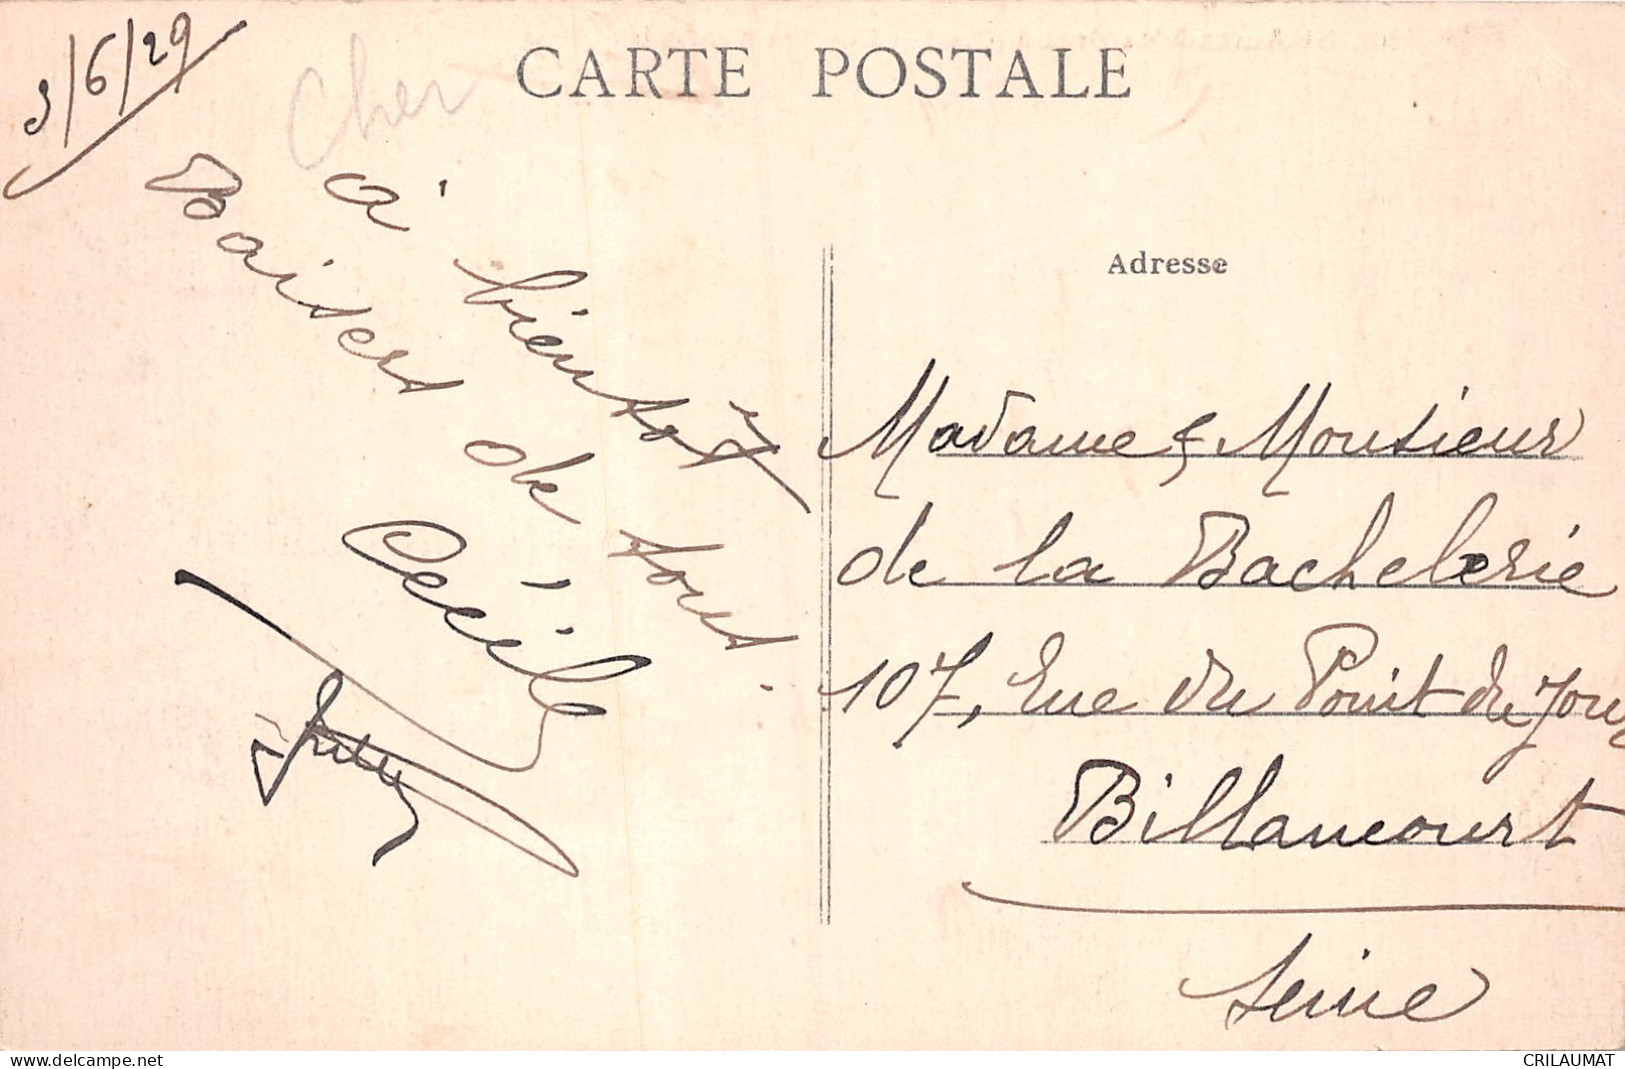 9/6/29
Cher
CARTE POSTALE
à bientôt
Baisers de tous.
Cécile
Adresse
Madame & Monsieur
de la Bachelerie
107, Rue du Point du Jour
Billancourt
Seine
delcampe.net
CRILAUMAT